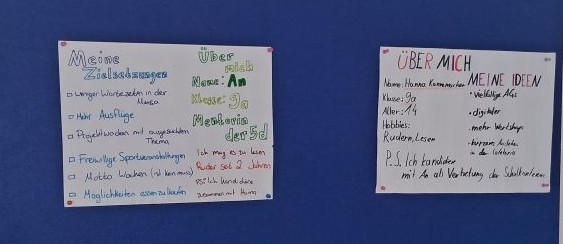 Meine
Zielsetzungen
Weniger Wartezeiten in der
Mensa
Mehr Ausflüge
Projektwochen mit ausgesuchten
Thema
Freiwillige Sportveranstaltungen
Motto Wochen (ist kein muss)
Möglichkeiten essen zu kaufen
Über
mich
Name: An
Klasse: 9a
Mentorin
der 5d
Ich mag es zu lesen
Ruder seit 2 Jahren
PS: Ich kandidiere
zusammen mit Hanna
ÜBER MICH
Name: Hanna
Klasse: 9a
Alter: 14
Hobbies:
Rudern, Lesen
P.S. Ich kandidiere
mit An als Vertretung der
MEINE IDEEN
• vielfältige AGs
• digitaler
• mehr Workshops
• kürzeres Anstehen
in der Cafeteria